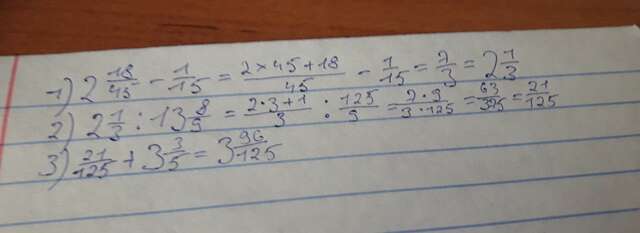 1) 2 18/45 - 1/15 = (2×45+18)/45 - 1/15 = 7/3 = 2 1/3
2) 2 1/3 : 13 8/9 = (2·3+1)/3 : 125/9 = (7·9)/(3·125) = 63/375 = 21/125
3) 21/125 + 3 3/5 = 3 96/125